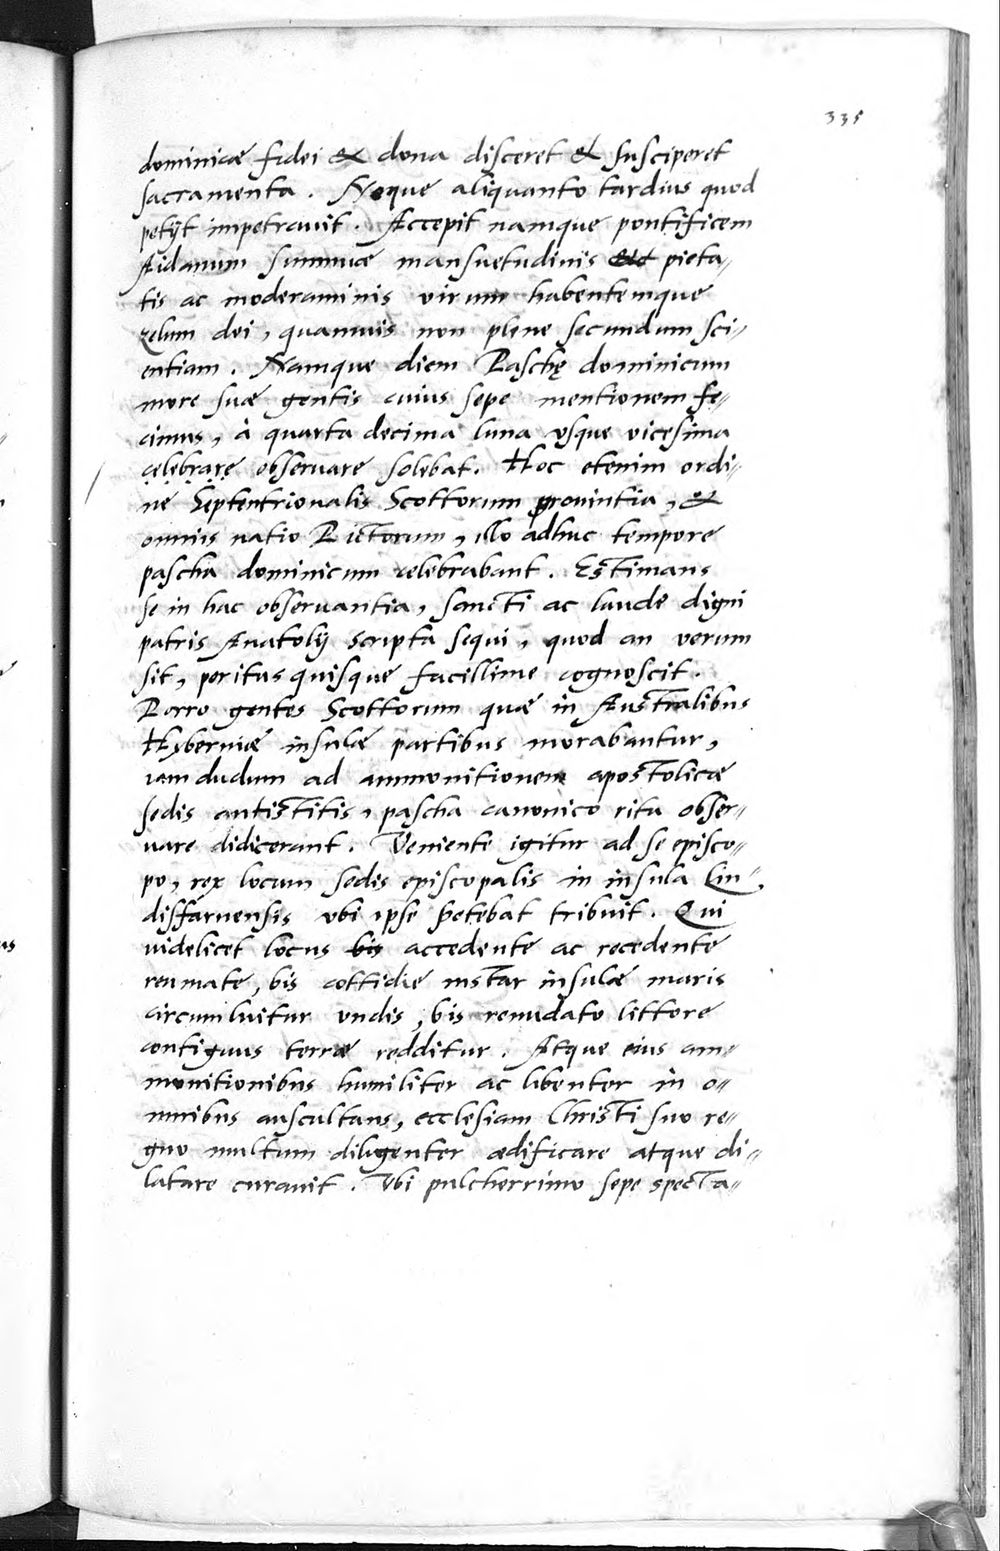 335
dominicæ fidei & dona disceret & susciperet
sacramenta. Neque aliquanto tardius quod
petijt impetrauit. Accepit namque pontificem
Aidanum summæ mansuetudinis pieta-
tis ac moderaminis virum habentemque
zelum dei, quamuis non plene secundum sci-
entiam. Namque diem Paschę dominicum
more suæ gentis cuius sepe mentionem fe-
cimus, à quarta decima luna vsque vicesima
celebrare obseruare solebat. Hoc etenim ordi-
ne Septentrionalis Scottorum prouintia, &
omnis natio Pictorum, illo adhuc tempore
pascha dominicum celebrabant. Estimans
se in hac obseruantia, sancti ac laude digni
patris Anatolij scripta sequi, quod an verum
sit, peritus quisque facillime cognoscit.
Porro gentes Scottorum quæ in Australibus
Hyberniæ insulæ partibus morabantur,
iam dudum ad ammonitionem apostolicæ
sedis antistitis, pascha canonico ritu obser-
uare didicerant. Veniente igitur ad se episco-
po, rex locum sedis episcopalis in insula Lin-
disfarnensis vbi ipse petebat tribuit. Qui
videlicet locus bis accedente ac recedente
reumate, bis cottidie instar insulæ maris
circumluitur vndis, bis renudato littore
contiguus terræ redditur. Atque eius am-
monitionibus humiliter ac libenter in o-
mnibus auscultans, ecclesiam Christi suo re-
gno multum diligenter ædificare atque di-
latare curauit. Vbi pulcherrimo sepe specta-